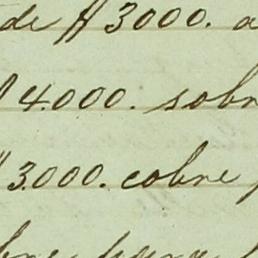 de $3000. a
$4.000. sobre
$3.000. cobre